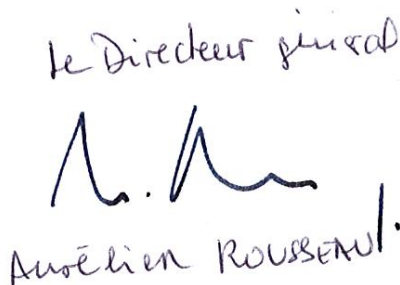 Le Directeur général
Aurélien ROUSSEAU.